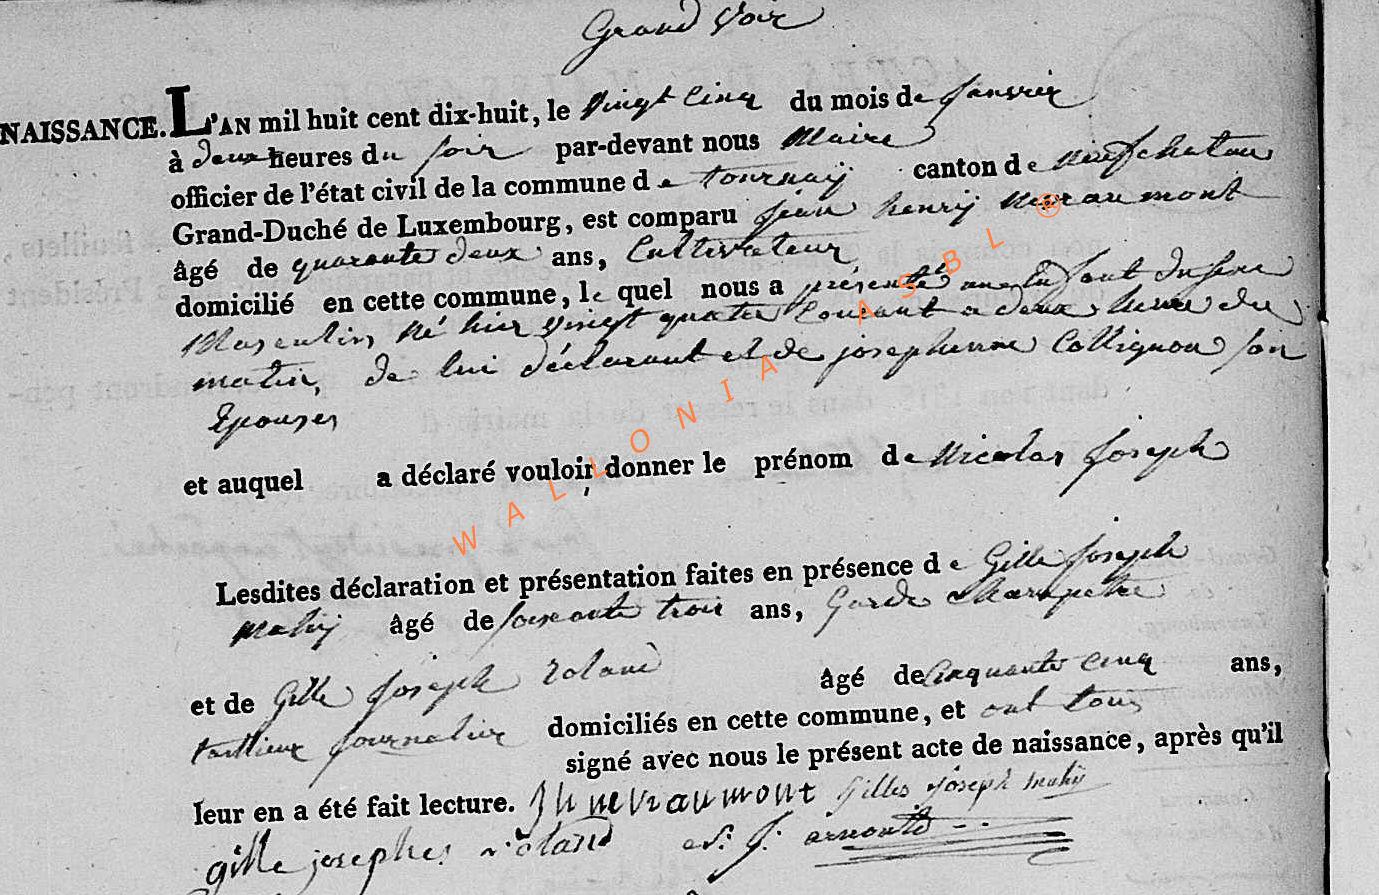 Grand Voir
NAISSANCE. L'AN mil huit cent dix-huit, le Vingt Cinq du mois de Janvier
à deux heures du soir par-devant nous Maire
officier de l'état civil de la commune de tournaÿ canton de Neufchateau
Grand-Duché de Luxembourg, est comparu jean henrÿ Nevraumont
âgé de quarante deux ans, Cultivateur
domicilié en cette commune, le quel nous a présenté un Enfant du sexe
Masculin, Né hier vingt quatre Courant a deux heures du
matin, de lui déclarant et de josephinne Collignon son
Epouse,
et auquel a déclaré vouloir donner le prénom de Nicolas Joseph
Lesdites déclaration et présentation faites en présence de Gille Joseph
mahÿ âgé de soixante trois ans, Garde Champetre
et de Gille Joseph roland âgé de Cinquante cinq ans,
journalier domiciliés en cette commune, et ont tous
signé avec nous le présent acte de naissance, après qu'il
leur en a été fait lecture. J h nevraumont Gilles Joseph mahÿ
gille josephe roland J. arnould
WALLONIA ASBL ®